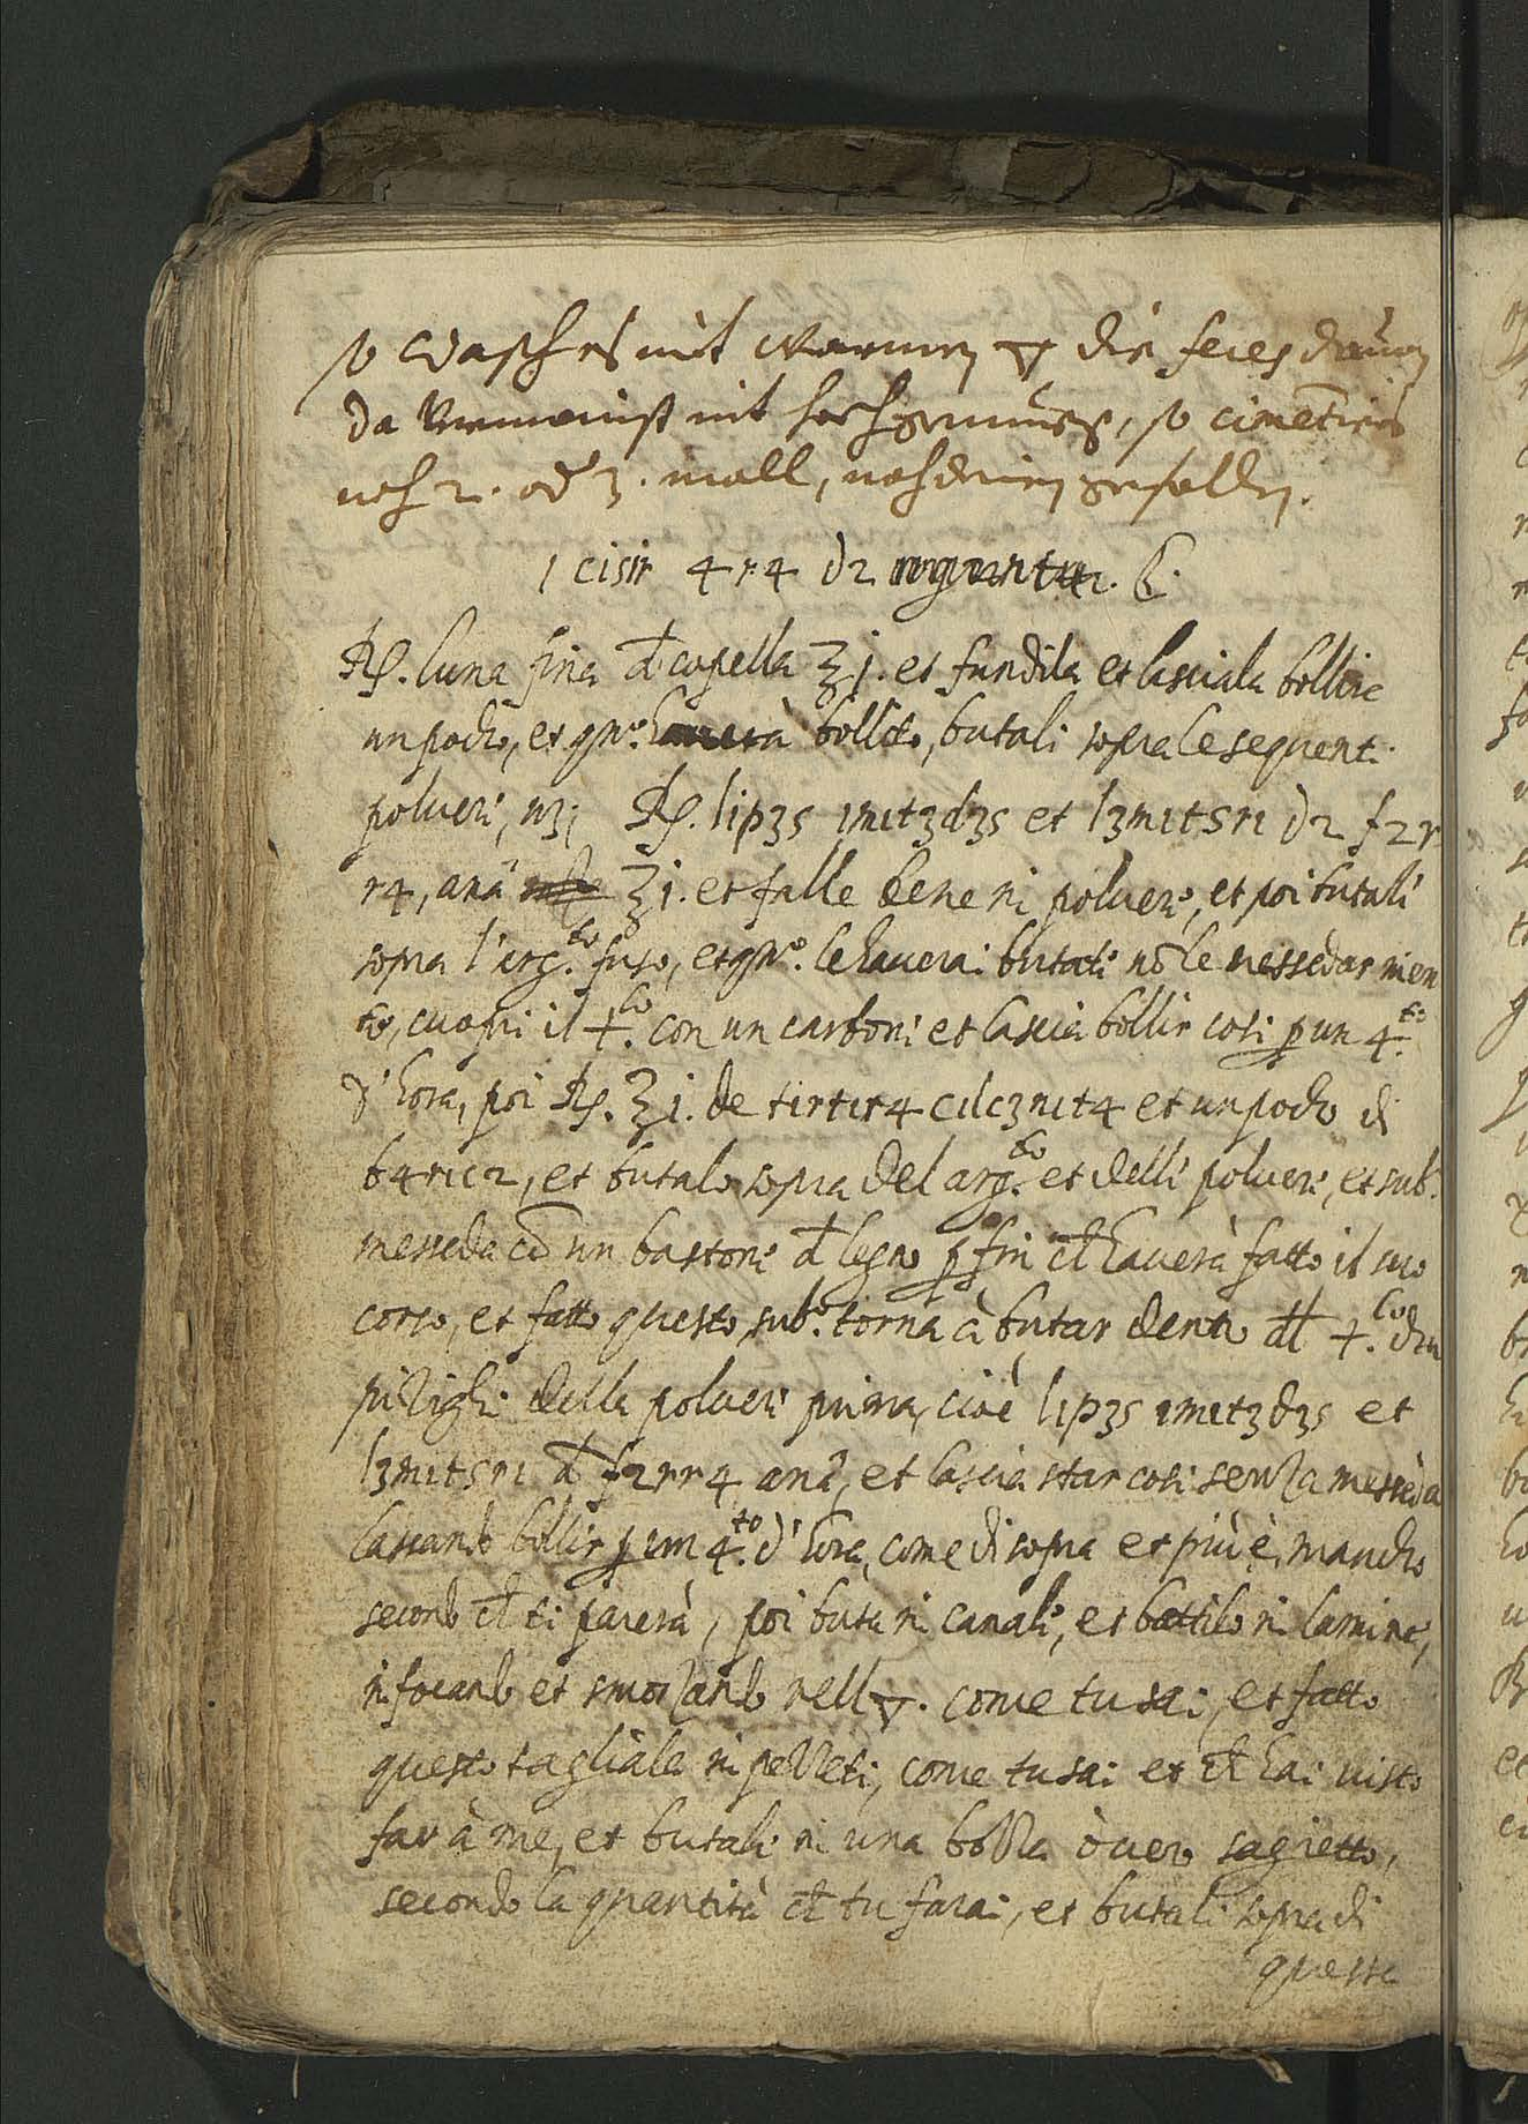 so wasch es mit warmen 🜄 die feces davon
da vermainst nit hoch genueg, so cimentiers
noch 2. od 3. mall, noch deinem gefallen.
1 cisir 4r4 d2
Rp. luna fina d capella ℥ j. et fundila et lasciala bollire
un pocho, et qn.º haverà bollito, butali sopra le sequent.
polveri, Rp. lip3s 1m1t3d3s et l3m1tsr1 d2 f2r
r4, anã ℥ j. et falle bene in polvere, et poi butali
sopra l'arg.to fuso, et qn.º le haverai butati nõ le messedar nien
te, cuopri il +.lo con un carboni et lascia bollir cosi p un 4.to
d'hora, poi Rp. ℥ j. de t1rt1r4 c1lc3n1t4 et un pocho di
b4r1c2, et butalo sopra del arg.to et delli polveri, et sub.
messeda cõ un bastone d legno p fin ch haverà fatto il suo
corso, et fatto questo, sub.º torna à butar dento dl +.lo dui
pizighi della polveri prima, cioè l1p3s 1m1t3d3s et
l3m1tsr1 d f2rr4 anã, et lascia star cosi senza messeda
lasciando bollir p un 4.to d'hora, come di sopra et più è, mancho
secondo ch ti parerà, poi buta in canali, et battilo in lamine,
infocando et smorzando nell 🜄. come tu sai, et fatto
questo tagliala in pezzeti, come tu sai et ch hai visto
far à me, et butali in una bozza òvero sagietto,
secondo la quantità ch tu farai, et butali sopra di
questa